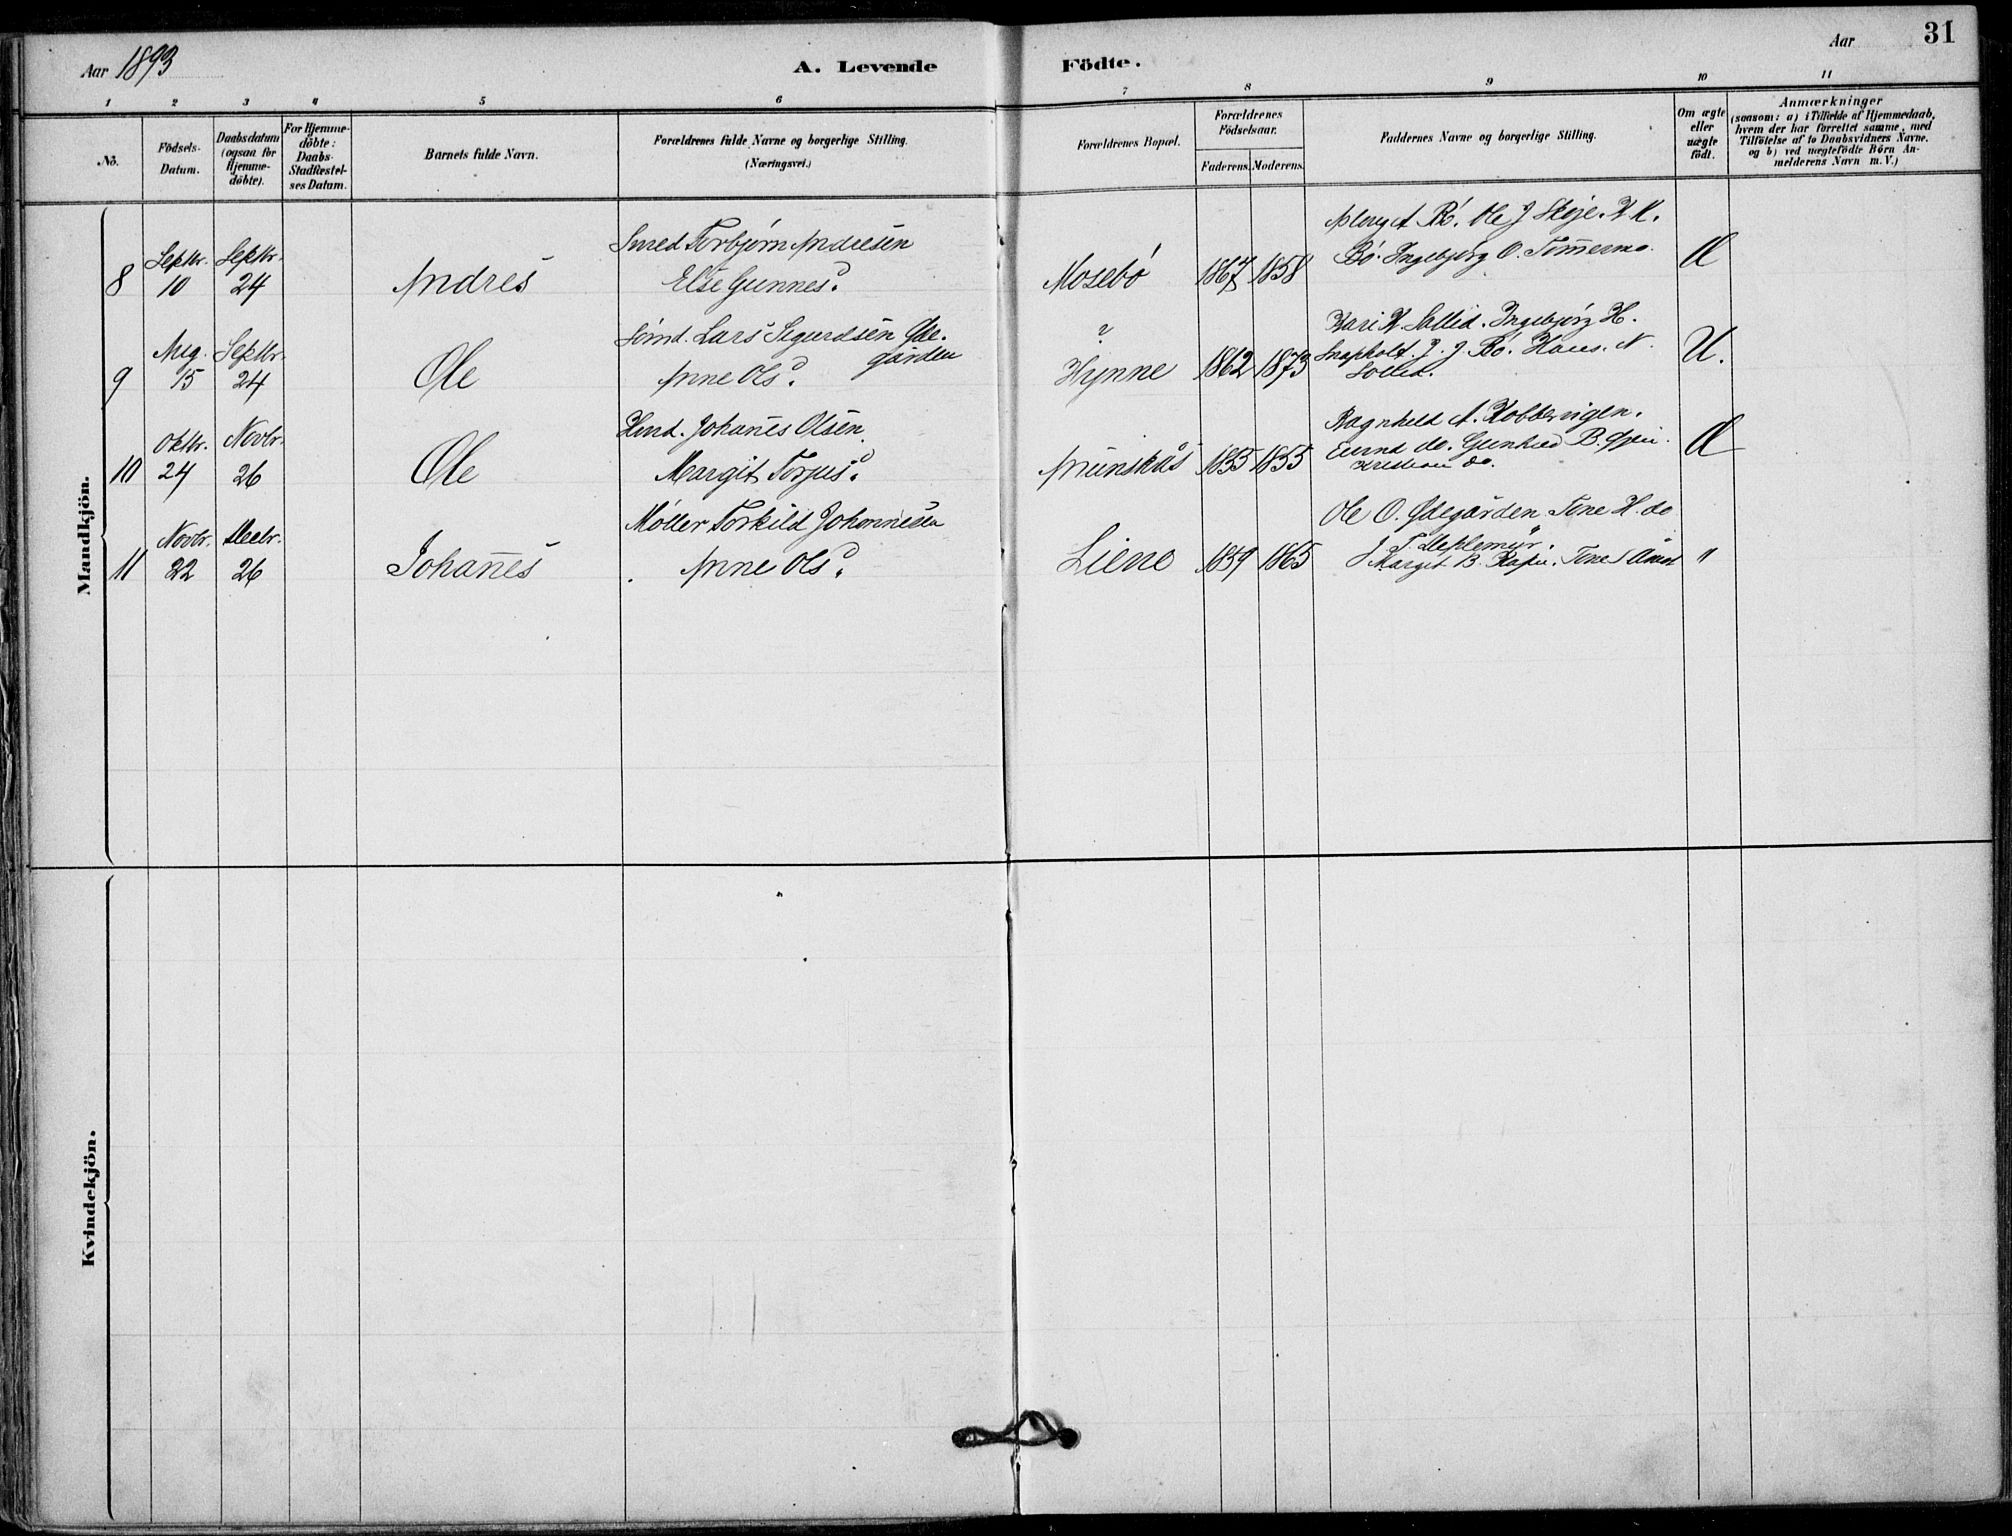 Aar 1893
A. Levende Födte.
Aar
31
1 2 3 4 5 6 7 8 9 10 11
No.
Födsels-Datum.
Daabsdatum (ogsaa for Hjemme-döbte).
For Hjemme-döbte: Daabs-Stadfæstel-ses Datum.
Barnets fulde Navn.
Forældrenes fulde Navne og borgerlige Stilling.
(Næringsvei.)
Forældrenes Bopæl.
Forældrenes Födselsaar.
Faderens. Moderens.
Faddernes Navne og borgerlige Stilling.
Om ægte eller uægte födt.
Anmærkninger
(saasom: a) i Tilfælde af Hjemmedaab,
hvem der har forrettet samme, med
Tilföielse af to Daabsvidners Navne.
og b) ved uægtefödte Börn An-
melderens Navn m. V.)
Mandkjön.
8 Septbr. 10 Septbr. 24 Andres Smed Torbjørn Andresen
Else Gunnesd. Mosebö 1867 1858 Ole J Skoje. K K.
Bö. Ingebjørg O. Timmermo. Æ
9 Aug. 15 Septbr. 24 Ole Lars Sigurdsen Øde-
gården
Anne Olsd. ? Hynne 1862 1873 Kari K Sollid. Ingebjørg H.
Snapholt. J. J. Bö. Hans. N.
Sollid. U.
10 Oktbr. 24 Novbr. 26 Ole Husmd. Johanes Olsen
Margit Torjusd. 1855 1855 Ragnhild A. Kobbervigen.
do. Gunhild B.
Kristian do. Æ
11 Novbr. 22 Decbr. 26 Johanes Møller Torkild Johannesen
Anne Olsd. Liene 1859 1865 Ole O. Ødegården Tone H. do
Margit B. Tone "
Kvindekjön.